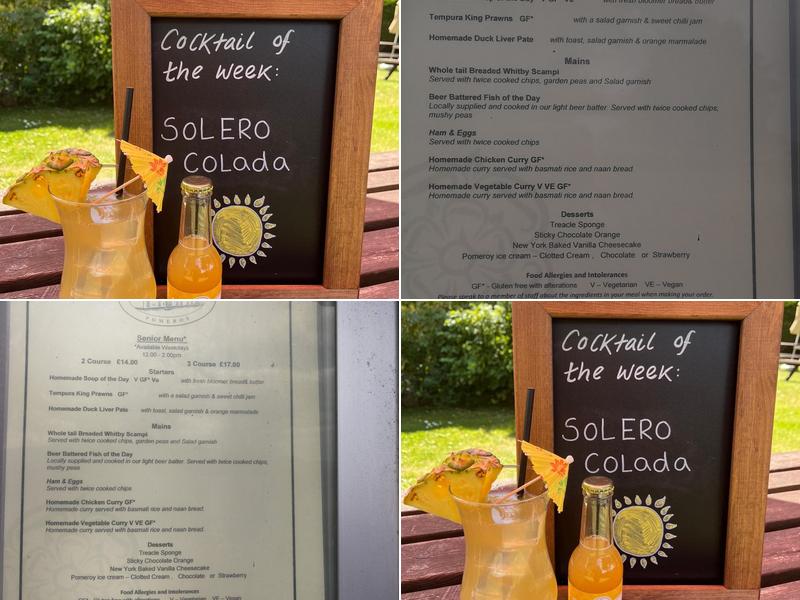 Cocktail of
the week:
SOLERO
COLada
Tempura King Prawns GF* with a salad garnish & sweet chilli jam
Homemade Duck Liver Pate with toast, salad garnish & orange marmalade
Mains
Whole tail Breaded Whitby Scampi
Served with twice cooked chips, garden peas and Salad garnish
Beer Battered Fish of the Day
Locally supplied and cooked in our light beer batter. Served with twice cooked chips,
mushy peas
Ham & Eggs
Served with twice cooked chips
Homemade Chicken Curry GF*
Homemade curry served with basmati rice and naan bread.
Homemade Vegetable Curry V VE GF*
Homemade curry served with basmati rice and naan bread.
Desserts
Treacle Sponge
Sticky Chocolate Orange
New York Baked Vanilla Cheesecake
Pomeroy ice cream – Clotted Cream , Chocolate or Strawberry
Food Allergies and Intolerances
GF* - Gluten free with alterations V – Vegetarian VE – Vegan
Please speak to a member of staff about the ingredients in your meal when making your order.
POMEROY
Senior Menu*
*Available Weekdays
12.00 - 2.00pm
2 Course £14.00 3 Course £17.00
Starters
Homemade Soup of the Day V GF* Ve with fresh bloomer bread& butter
Tempura King Prawns GF* with a salad garnish & sweet chilli jam
Homemade Duck Liver Pate with toast, salad garnish & orange marmalade
Mains
Whole tail Breaded Whitby Scampi
Served with twice cooked chips, garden peas and Salad garnish
Beer Battered Fish of the Day
Locally supplied and cooked in our light beer batter. Served with twice cooked chips,
mushy peas
Ham & Eggs
Served with twice cooked chips
Homemade Chicken Curry GF*
Homemade curry served with basmati rice and naan bread.
Homemade Vegetable Curry V VE GF*
Homemade curry served with basmati rice and naan bread.
Desserts
Treacle Sponge
Sticky Chocolate Orange
New York Baked Vanilla Cheesecake
Pomeroy ice cream – Clotted Cream , Chocolate or Strawberry
Food Allergies and Intolerances
Cocktail of
the week:
SOLERO
COLada